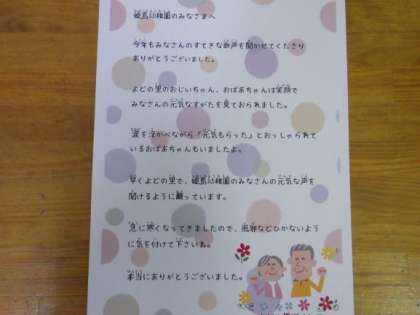 姫島幼稚園のみなさまへ
今年もみなさんのすてきな歌声を聞かせてくださり
ありがとうございました。
よどの里のおじいちゃん、おばあちゃんは笑顔で
みなさんの元気なすがたを見ておられました。
涙を浮かべながら「元気もらった」とおっしゃられて
いるおばあちゃんもいましたよ。
早くよどの里で、姫島幼稚園のみなさんの元気な声を
聞けるように願っています。
急に寒くなってきましたので、風邪などひかないよう
に気を付けて下さいね。
本当にありがとうございました。